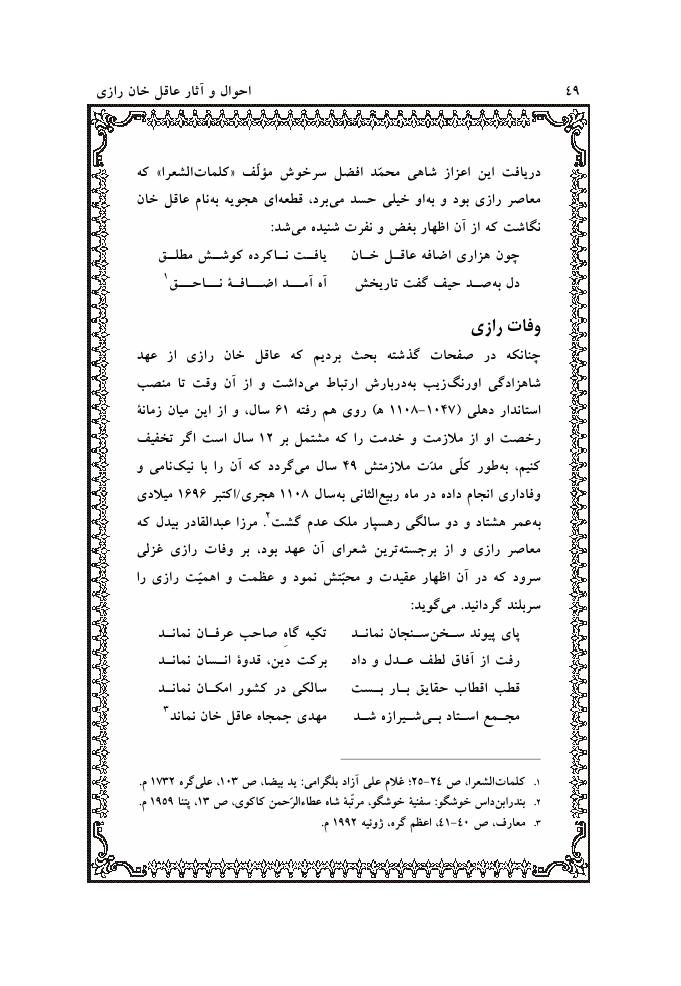 ٤٩ احوال و آثار عاقل خان رازی
دریافت این اعزاز شاهی محمّد افضل سرخوش مؤلّف «کلمات‌الشعرا» که
معاصر رازی بود و به‌او خیلی حسد می‌برد، قطعه‌ای هجویه به‌نام عاقل خان
نگاشت که از آن اظهار بغض و نفرت شنیده می‌شد:
چون هزاری اضافه عاقل خان یافت ناکرده کوشش مطلق
دل به‌صد حیف گفت تاریخش آه آمد اضافهٔ ناحق۱
وفات رازی
چنانکه در صفحات گذشته بحث بردیم که عاقل خان رازی از عهد
شاهزادگی اورنگ‌زیب به‌دربارش ارتباط می‌داشت و از آن وقت تا منصب
استاندار دهلی (۱۰۴۷-۱۱۰۸ ه‍) روی هم رفته ۶۱ سال، و از این میان زمانهٔ
رخصت او از ملازمت و خدمت را که مشتمل بر ۱۲ سال است اگر تخفیف
کنیم، به‌طور کلّی مدّت ملازمتش ۴۹ سال می‌گردد که آن را با نیک‌نامی و
وفاداری انجام داده در ماه ربیع‌الثانی به‌سال ۱۱۰۸ هجری/اکتبر ۱۶۹۶ میلادی
به‌عمر هشتاد و دو سالگی رهسپار ملک عدم گشت۲. مرزا عبدالقادر بیدل که
معاصر رازی و از برجسته‌ترین شعرای آن عهد بود، بر وفات رازی غزلی
سرود که در آن اظهار عقیدت و محبّتش نمود و عظمت و اهمیّت رازی را
سربلند گردانید. می‌گوید:
پای پیوند سخن‌سنجان نماند تکیه گاهِ صاحب عرفان نماند
رفت از آفاق لطف عدل و داد برکت دین، قدوهٔ انسان نماند
قطب اقطاب حقایق بار بست سالکی در کشور امکان نماند
مجمع استاد بی‌شیرازه شد مهدی جمجاه عاقل خان نماند۳
۱. کلمات‌الشعرا، ص ۲۴-۲۵؛ غلام علی آزاد بلگرامی: ید بیضا، ص ۱۰۳، علی‌گره ۱۷۳۲ م.
۲. بندرابن‌داس خوشگو: سفنیهٔ خوشگو، مرتّبهٔ شاه عطاءالرّحمن کاکوی، ص ۱۳، پتنا ۱۹۵۹ م.
۳. معارف، ص ۴۰-۴۱، اعظم گره، ژوئیه ۱۹۹۲ م.